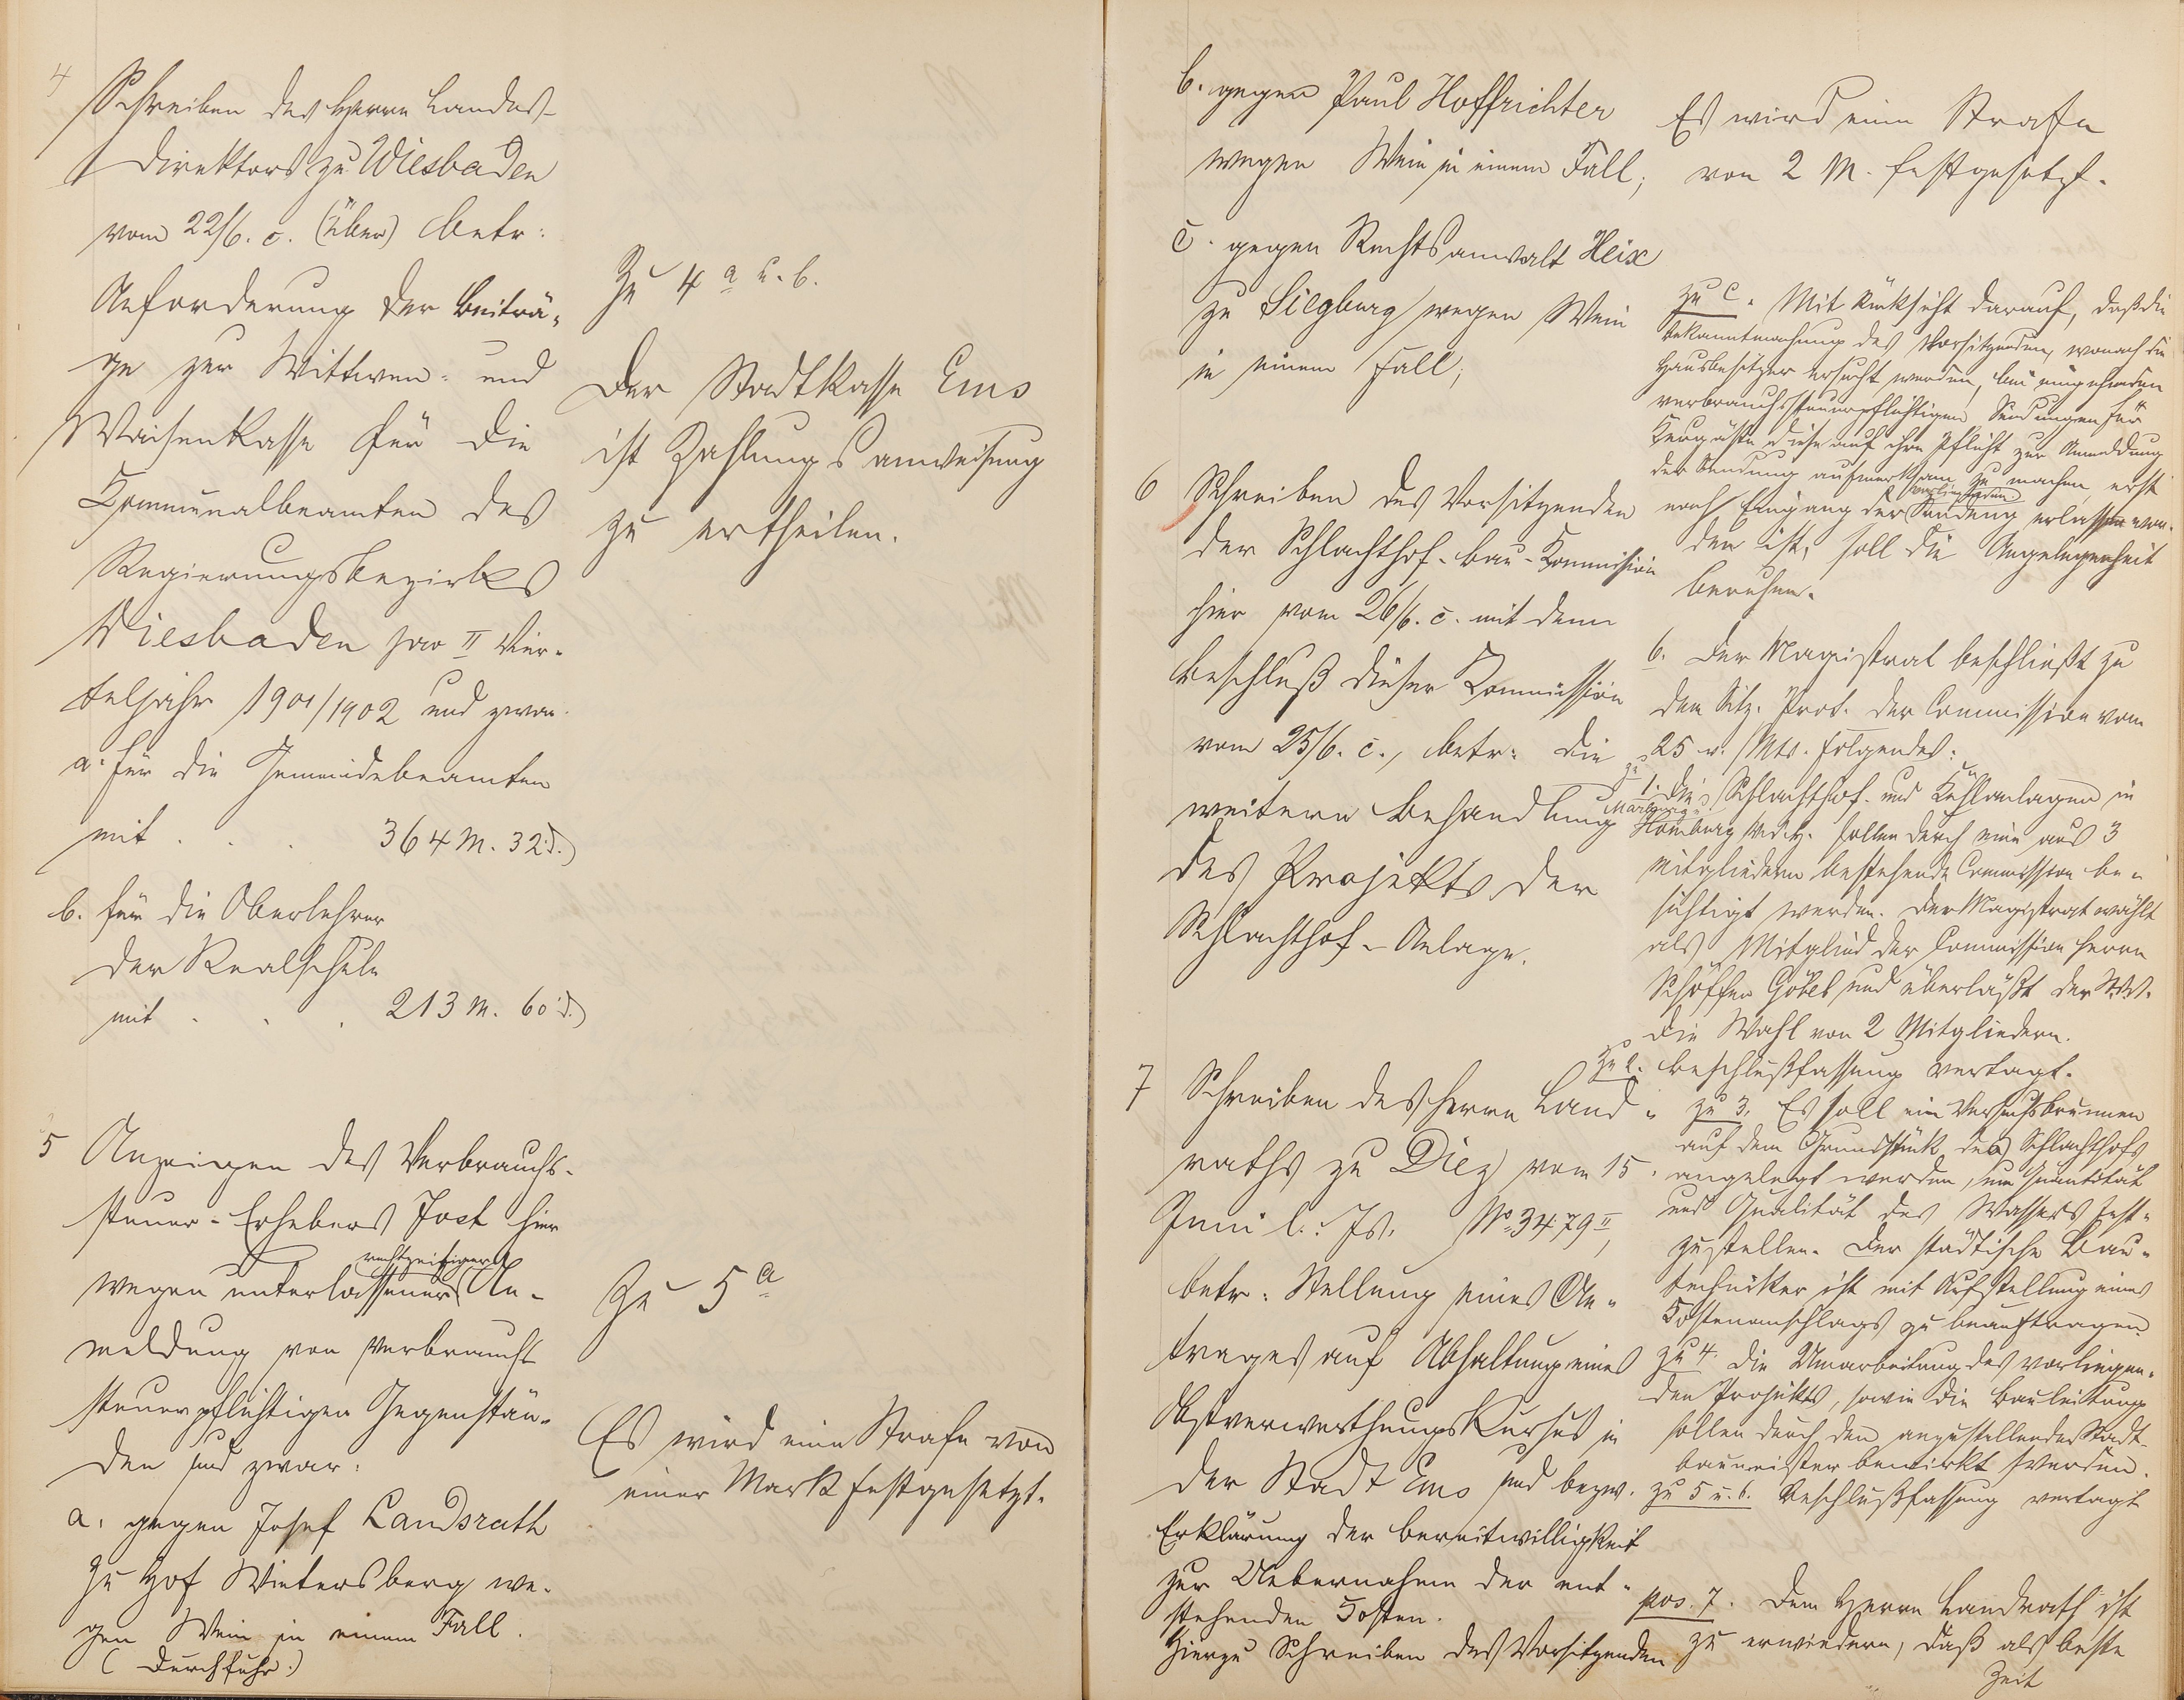 4
Schreiben des Herrn Landes-
direktors zu Wiesbaden
vom 22/6. c. (über) betr:
Anforderung der Beiträ-
ge zur Wittwen- und
Waisenkasse für die
Kommunalbeamten des
Regierungsbezirks
Wiesbaden pro II Vier-
teljahr 1901/1902 und zwar
a. für die Gemeindebeamten
mit . . . 364 M. 32 d.)
b. für die Oberlehrer
der Realschule
mit . . . 213 M. 60 d.)
Zu 4 a u. b.
Der Stadtkasse Ems
ist Zahlungsanweisung
zu ertheilen.
5 Anzeigen des Verbrauchs-
steuer-Erhebers Jost hier
rechtzeitiger
wegen unterlassener An-
meldung von verbrauchs
steuerpflichtigen Gegenstän-
den und zwar:
a. gegen Josef Landsrath
zu Hof Wintersberg we-
gen Wein in einem Fall.
(Durchfuhr.)
Zu 5 a
Es wird eine Strafe von
einer Mark festgesetzt.
b. gegen Paul Hoffrichter
wegen Wein in einem Fall;
c. gegen Rechtsanwalt Heix
zu Siegburg wegen Wein
in einem Fall;
6 Schreiben des Vorsitzenden
der Schlachthof-Bau-Kommission
hier vom 26/6. c. mit dem
Beschluß dieser Kommission
vom 25/6. c., betr: die
weitere Behandlung
des Projekts der
Schlachthof-Anlage.
7 Schreiben des Herrn Land-
raths zu Diez vom 15.
Juni l. Js. No 3479 II,
betr: Stellung eines An-
trages auf Abhaltung eines
Obstverwerthungskursus in
der Stadt Ems und bezw.
Erklärung der Bereitwilligkeit
zur Uebernahme der ent-
stehenden Kosten.
Hierzu Schreiben des Vorsitzenden
Es wird eine Strafe
von 2 M. festgesetzt.
zu c. Mit Rücksicht darauf, daß die
Bekanntmachung des Vorsitzenden, wonach die
Hausbesitzer ersucht werden, bei eingehenden
verbrauchssteuerpflichtigen Sendungen für
Kurgäste diese auf ihre Pflicht zur Anmeldung
der Sendung aufmerksam zu machen, erst
vorliegenden
nach Eingang der Sendung erlassen wor-
den ist, soll die Angelegenheit
beruhen.
6. Der Magistrat beschließt zu
dem Sitz. Prot. der Commission vom
25 v. Mts. folgendes:
zu 1. Die Schlachthof- und Kühlanlagen in
Homburg v. d. H. sollen durch eine aus 3
Mitgliedern bestehende Commission be-
sichtigt werden. Der Magistrat wählt
als Mitglied der Commission Herrn
Schöffen Göbel und überläßt der St. V.
die Wahl von 2 Mitgliedern.
zu 2. Beschlußfassung vertagt.
zu 3. Es soll ein Versuchsbrunnen
auf dem Grundstück des Schlachthofs
angelegt werden, um Quantität
und Qualität des Wassers fest-
zustellen. Der städtische Bau-
techniker ist mit Aufstellung eines
Kostenanschlags zu beauftragen.
zu 4. Die Umarbeitung des vorliegen-
den Projekts, sowie die Bauleitung
sollen durch den anzustellenden Stadt-
baumeister bewirkt werden.
zu 5 u. 6. Beschlußfassung vertagt
pos. 7. Dem Herrn Landrath ist
zu erwiedern, daß als beste
Zeit